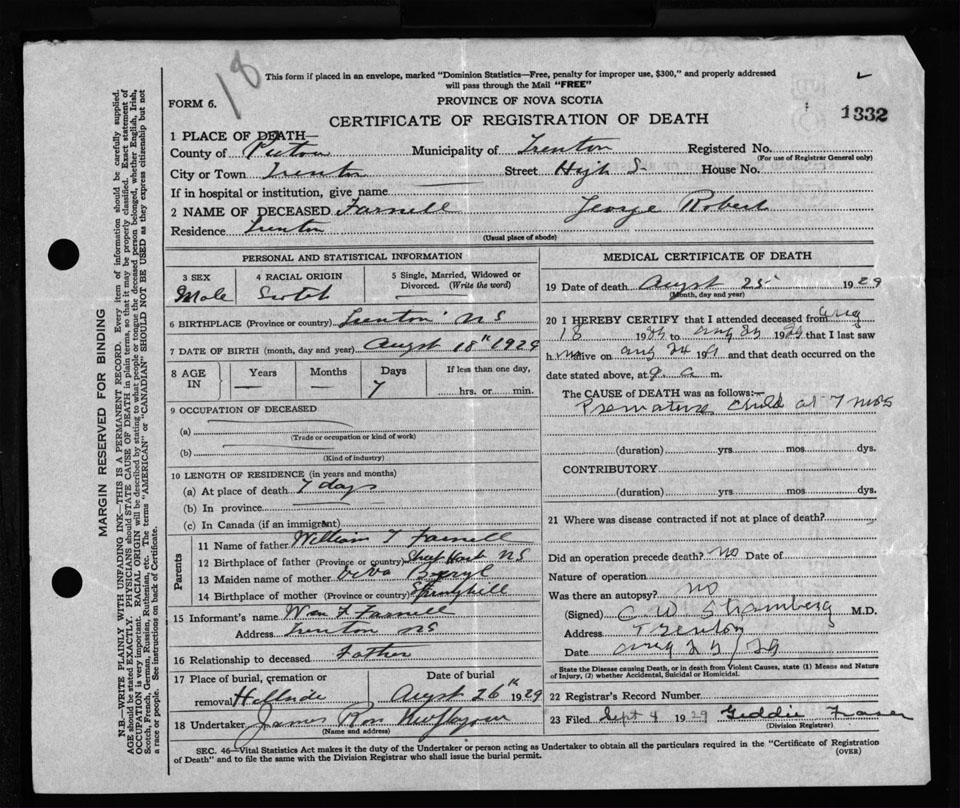 18
This form if placed in an envelope, marked "Dominion Statistics—Free, penalty for improper use, $300," and properly addressed
will pass through the Mail "FREE"
FORM 6.
PROVINCE OF NOVA SCOTIA
CERTIFICATE OF REGISTRATION OF DEATH
1332
1 PLACE OF DEATH—
County of Pictou Municipality of Trenton Registered No.
(For use of Registrar General only)
City or Town Trenton Street High S. House No.
If in hospital or institution, give name
2 NAME OF DECEASED Farnell George Robert
Residence Trenton
(Usual place of abode)
PERSONAL AND STATISTICAL INFORMATION
3 SEX
Male
4 RACIAL ORIGIN
Scotch
5 Single, Married, Widowed or
Divorced. (Write the word)
6 BIRTHPLACE (Province or country) Trenton NS
7 DATE OF BIRTH (month, day and year) Augst 18th 1929
8 AGE IN
Years —
Months —
Days 7
If less than one day,
hrs. or min.
9 OCCUPATION OF DECEASED
(a)
(Trade or occupation or kind of work)
(b)
(Kind of industry)
10 LENGTH OF RESIDENCE (in years and months)
(a) At place of death 7 days
(b) In province
(c) In Canada (if an immigrant)
Parents
11 Name of father William T Farnell
12 Birthplace of father (Province or country) NS
13 Maiden name of mother Beryl
14 Birthplace of mother (Province or country) Springhill
15 Informant's name Wm T Farnell
Address Trenton NS
16 Relationship to deceased Father
17 Place of burial, cremation or
removal Hellside
Date of burial
Augst 26th 1929
18 Undertaker James Ross New Glasgow
(Name and address)
MEDICAL CERTIFICATE OF DEATH
19 Date of death Augst 25 1929
(Month, day and year)
20 I HEREBY CERTIFY that I attended deceased from Aug
18 1929 to Aug 25 1929 that I last saw
h im alive on Aug 24 19 and that death occurred on
date stated above, at 9 a m.
The CAUSE OF DEATH was as follows:—
Premature Child at 7 mos
(duration) yrs mos dys.
CONTRIBUTORY
(duration) yrs mos dys.
21 Where was disease contracted if not at place of death?
Did an operation precede death? No Date of
Nature of operation
Was there an autopsy? No
(Signed) C W Stramberg M.D.
Address Trenton
Date Aug 25/29
State the Disease causing Death, or in death from Violent Causes, state (1) Means and Nature
of Injury, (2) whether Accidental, Suicidal or Homicidal.
22 Registrar's Record Number
23 Filed Sept 4 1929 Geddie Fraser
(Division Registrar)
SEC. 46—Vital Statistics Act makes it the duty of the Undertaker or person acting as Undertaker to obtain all the particulars required in the "Certificate of Registration
of Death" and to file the same with the Division Registrar who shall issue the burial permit.
(OVER)
MARGIN RESERVED FOR BINDING
N.B.—WRITE PLAINLY WITH UNFADING INK—THIS IS A PERMANENT RECORD. Every item of information should be carefully supplied.
AGE should be stated EXACTLY. PHYSICIANS should STATE CAUSE OF DEATH in plain terms, so that it may be properly classified. Exact statement of
OCCUPATION is very important. RACIAL ORIGIN will be described by stating to what people or tongue the deceased person belonged, whether English, Irish,
Scotch, French, German, Russian, Ruthenian, etc. The terms "AMERICAN" or "CANADIAN" SHOULD NOT BE USED as they express citizenship but not
a race or people. See instructions on back of Certificate.